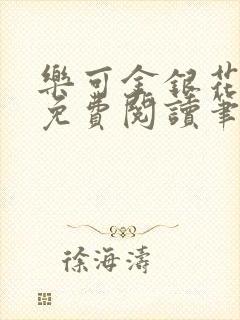 樂可金銀花
免費閱讀筆
徐海濤